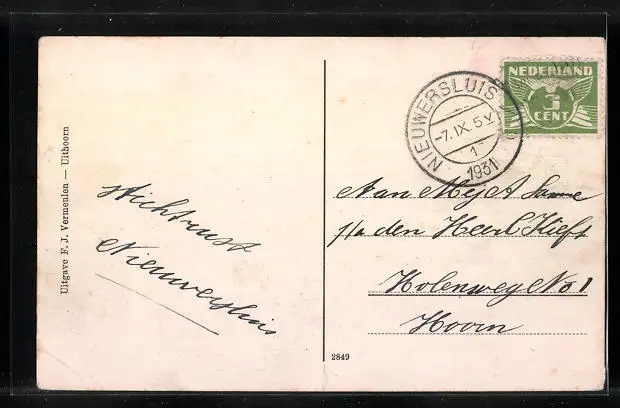 Uitgave F. J. Vermeulen — Uithoorn
Nieuwersluis
NIEUWERSLUIS
-7.IX. 5 V
1
1931
NEDERLAND
3
CENT
Aan Mej A
p/a den Heer Kieft
Holenweg No 1
Hoorn
2849